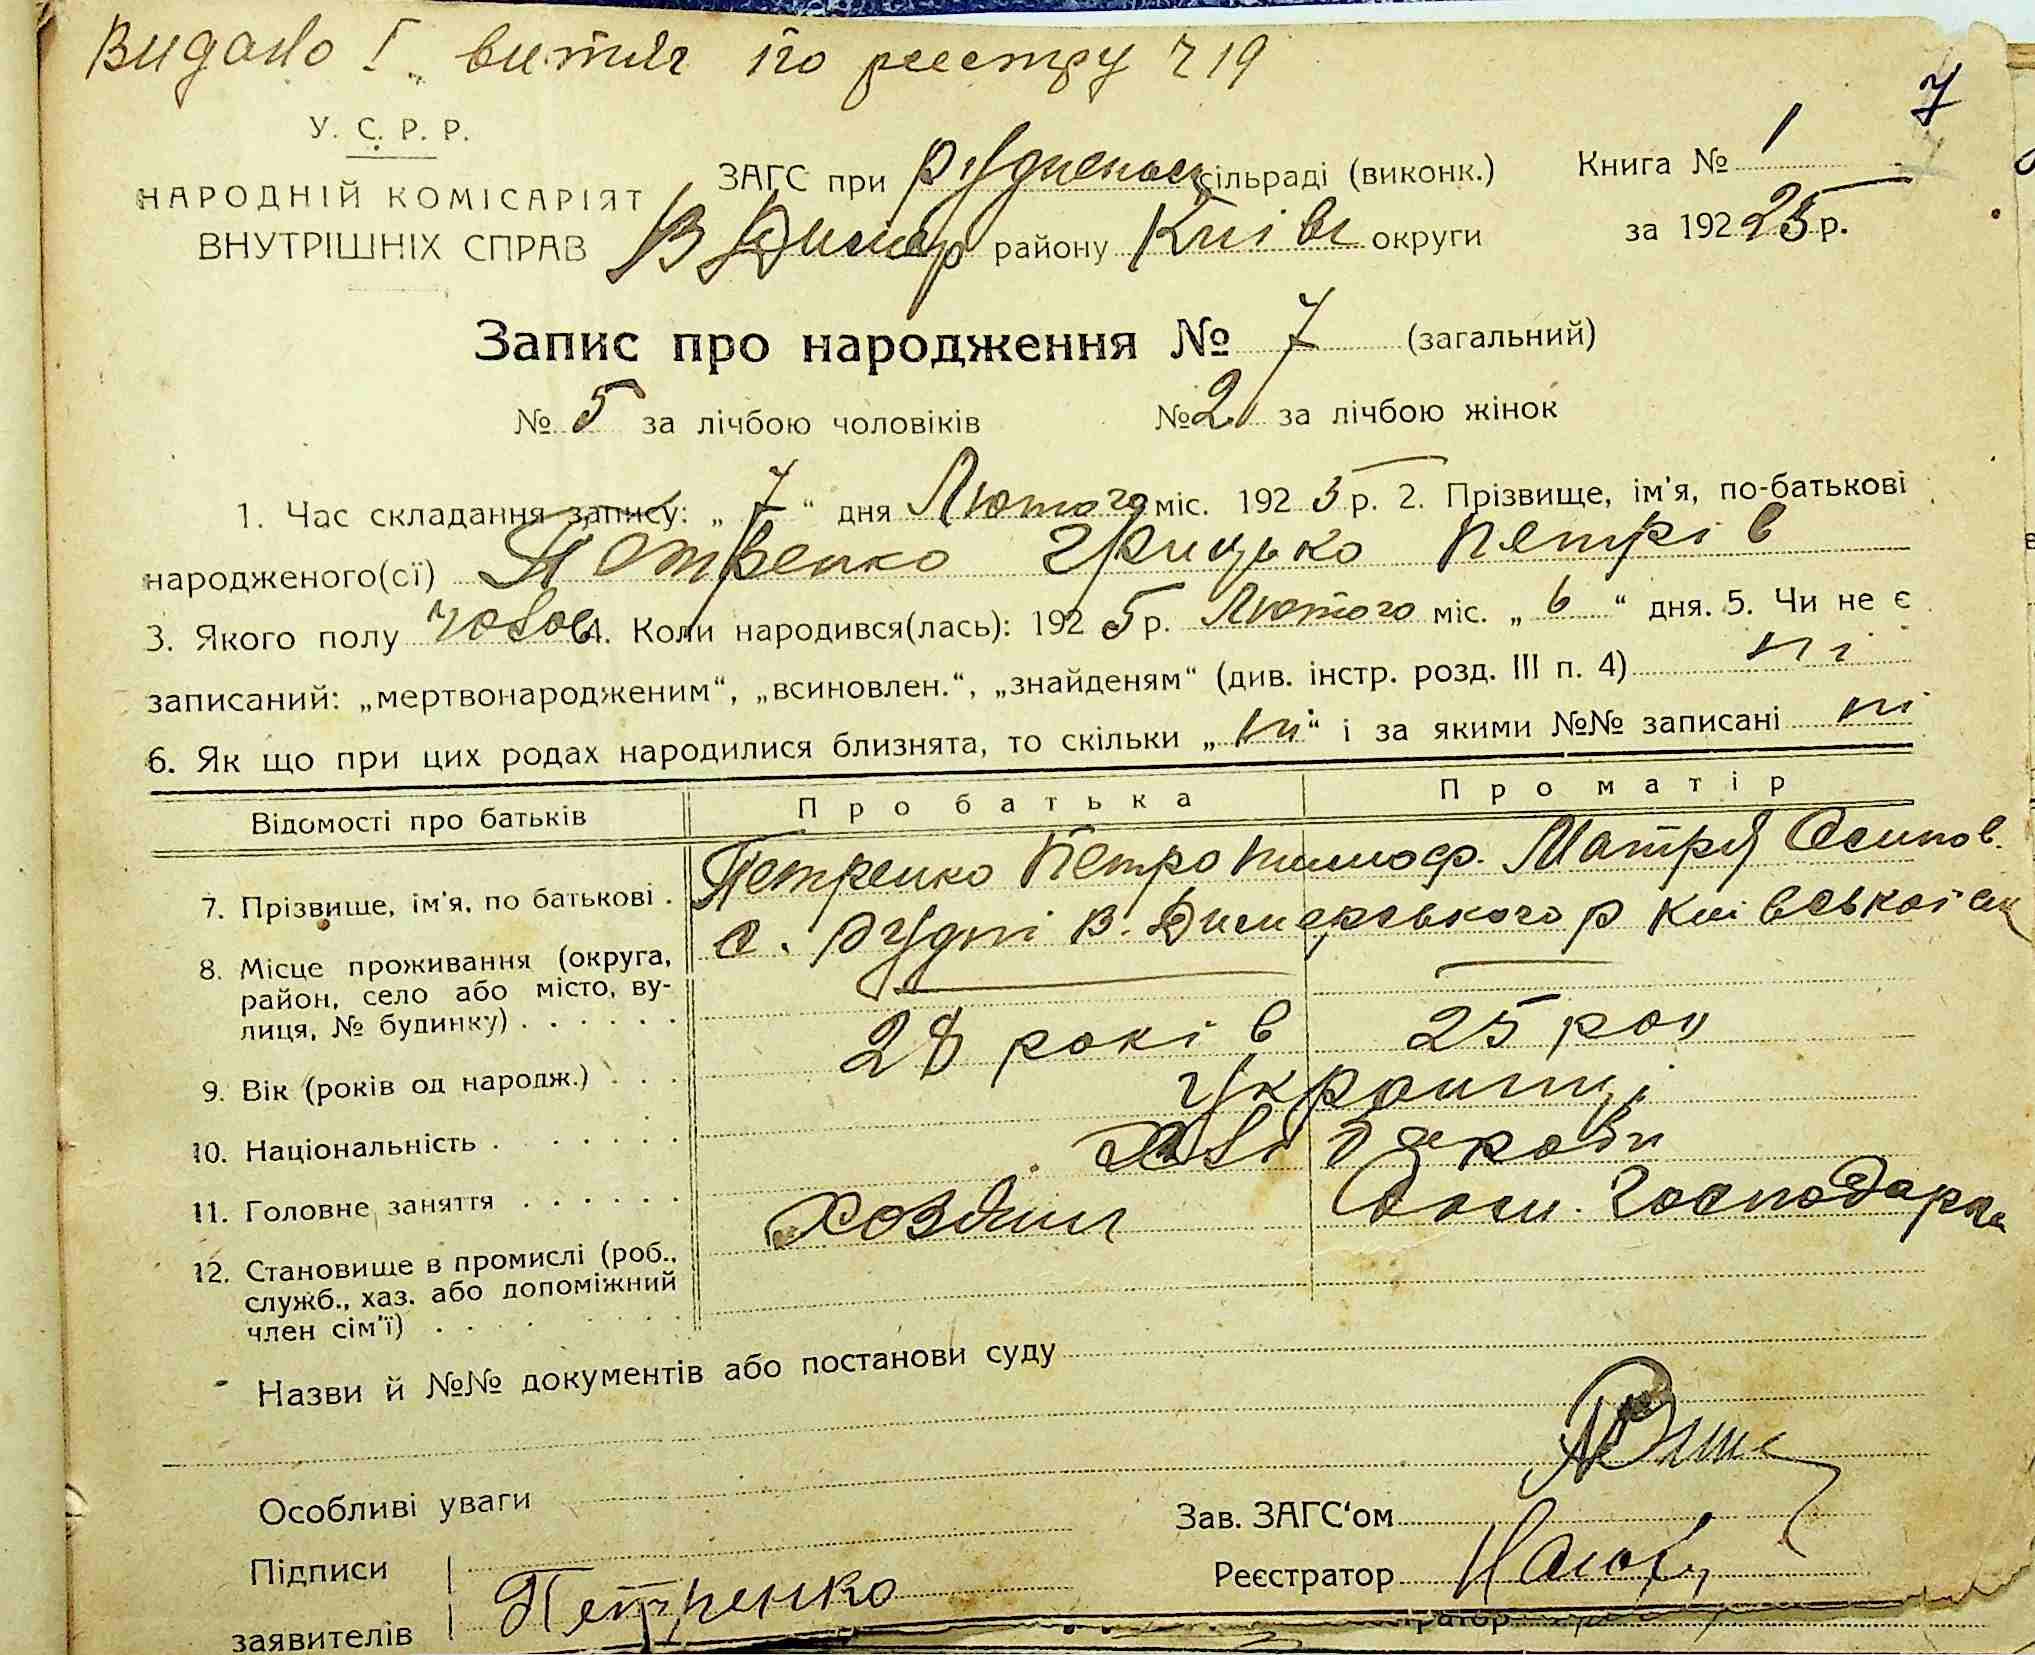 Видано I витяг по реєстру ч 19
7
У. С. Р. Р.
НАРОДНІЙ КОМІСАРІЯТ
ВНУТРІШНІХ СПРАВ
ЗАГС при Рудненськ сільраді (виконк.)
В Димер району Київ округи
Книга № 1
за 192 25 р.
Запис про народження № 7 (загальний)
№ 5 за лічбою чоловіків № 2 за лічбою жінок
1. Час складання запису: „ 7 “ дня Лютого міс. 192 5 р. 2. Прізвище, ім'я, по-батькові
народженого(сї) Петренко Грицько Петрів
3. Якого полу чолов 4. Коли народився(лась): 192 5 р. Лютого міс. „ 6 “ дня. 5. Чи не є
записаний: „мертвонародженим“, „всиновлен.“, „знайденям“ (див. інстр. розд. III п. 4) ні
6. Як що при цих родах народилися близнята, то скільки „ ні “ і за якими №№ записані ні
Відомості про батьків Про батька Про матір
7. Прізвише, ім'я, по батькові . Петренко Петро Тимоф. Матря Осипов.
8. Місце проживання (округа, с. Рудні В. Димерського р Київської ок
район, село або місто, ву-
лиця, № будинку) . . . . . .
9. Вік (років од народж.) . . . 28 років 25 рок
10. Національність . . . . . . . Украинці
11. Головне заняття . . . . . . Хліборобі
12. Становище в промислі (роб., Хозяин Дом. Господарка
служб., хаз. або допоміжний
член сім'ї) . . . . . . . .
Назви й №№ документів або постанови суду
Особливі уваги
Зав. ЗАГС'ом
Підписи
Реєстратор
заявителів Петренко
ратор